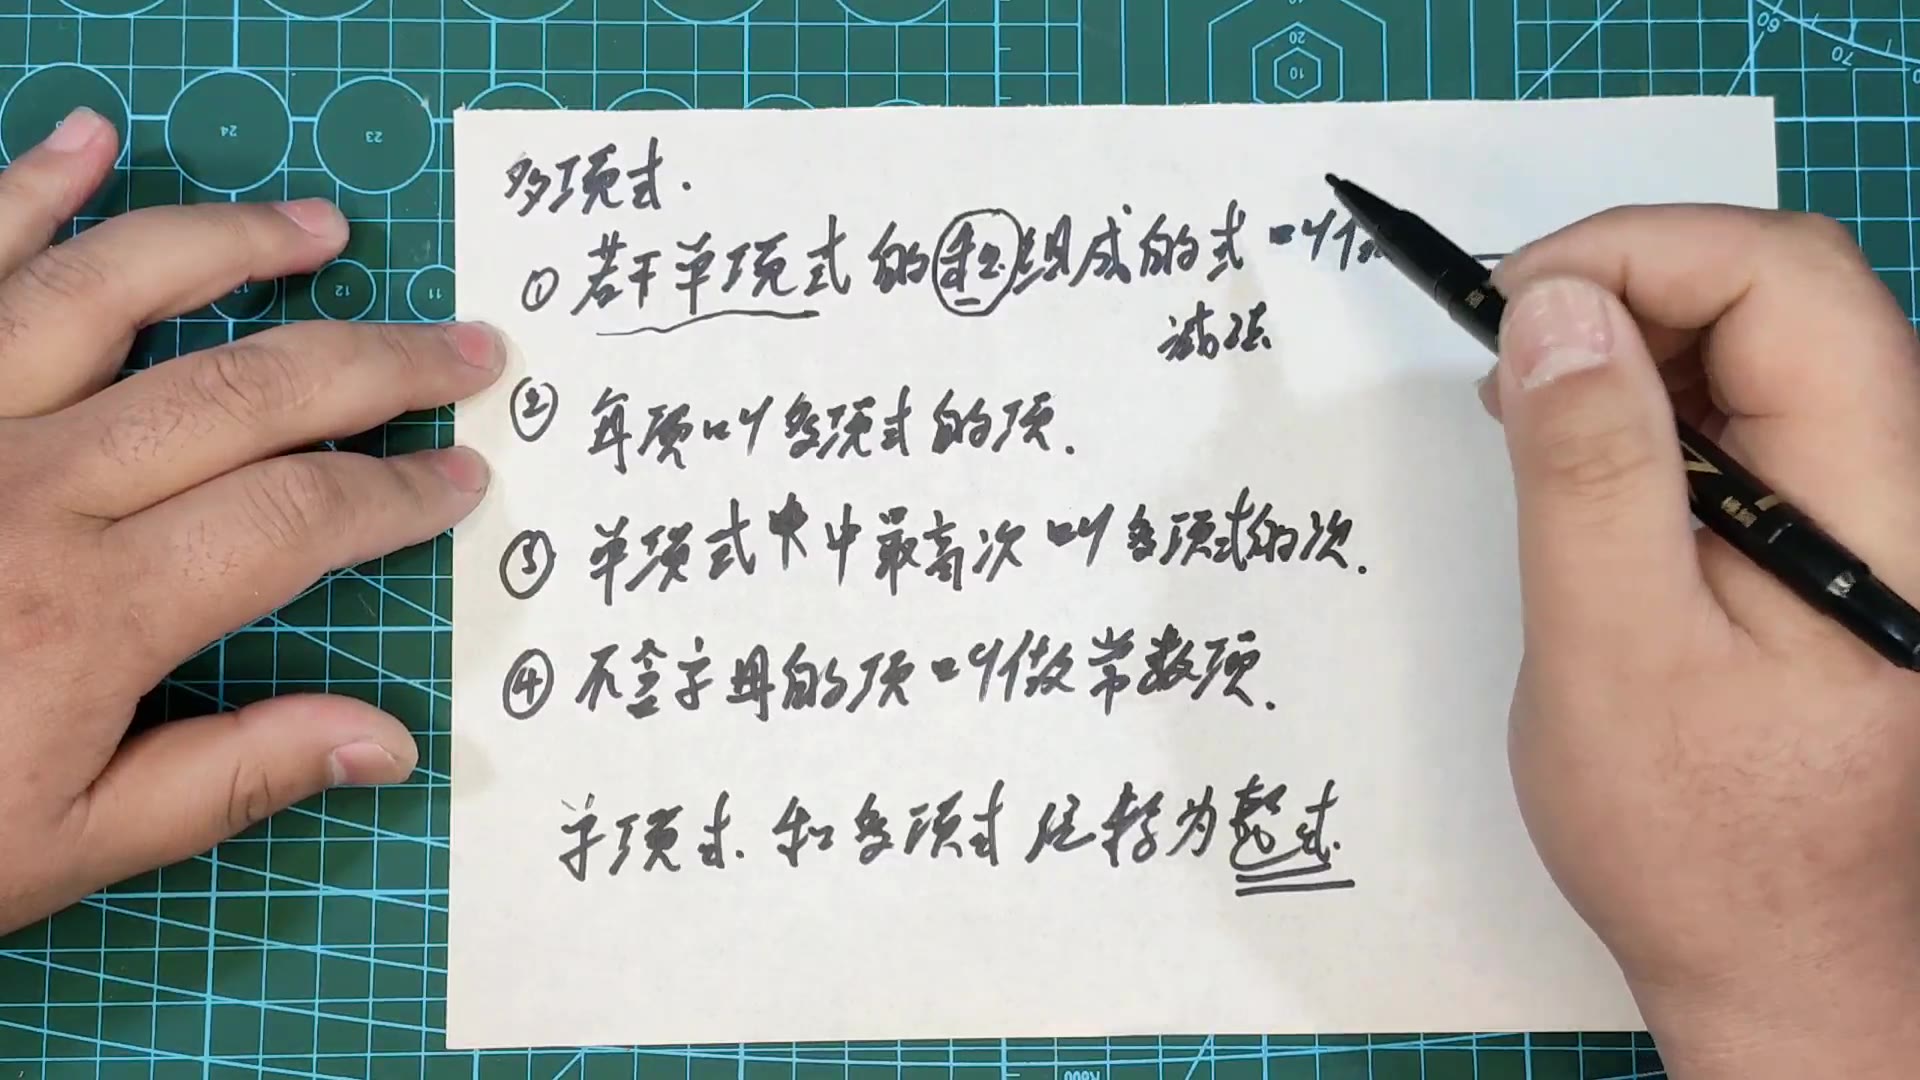 多项式.
① 若干单项式的和组成的式叫做
减法
② 每项叫多项式的项.
③ 单项式中最高次叫多项式的次.
④ 不含字母的项叫做常数项.
单项式.和多项式统称为整式.
24
23
12
11
20
10
60
70